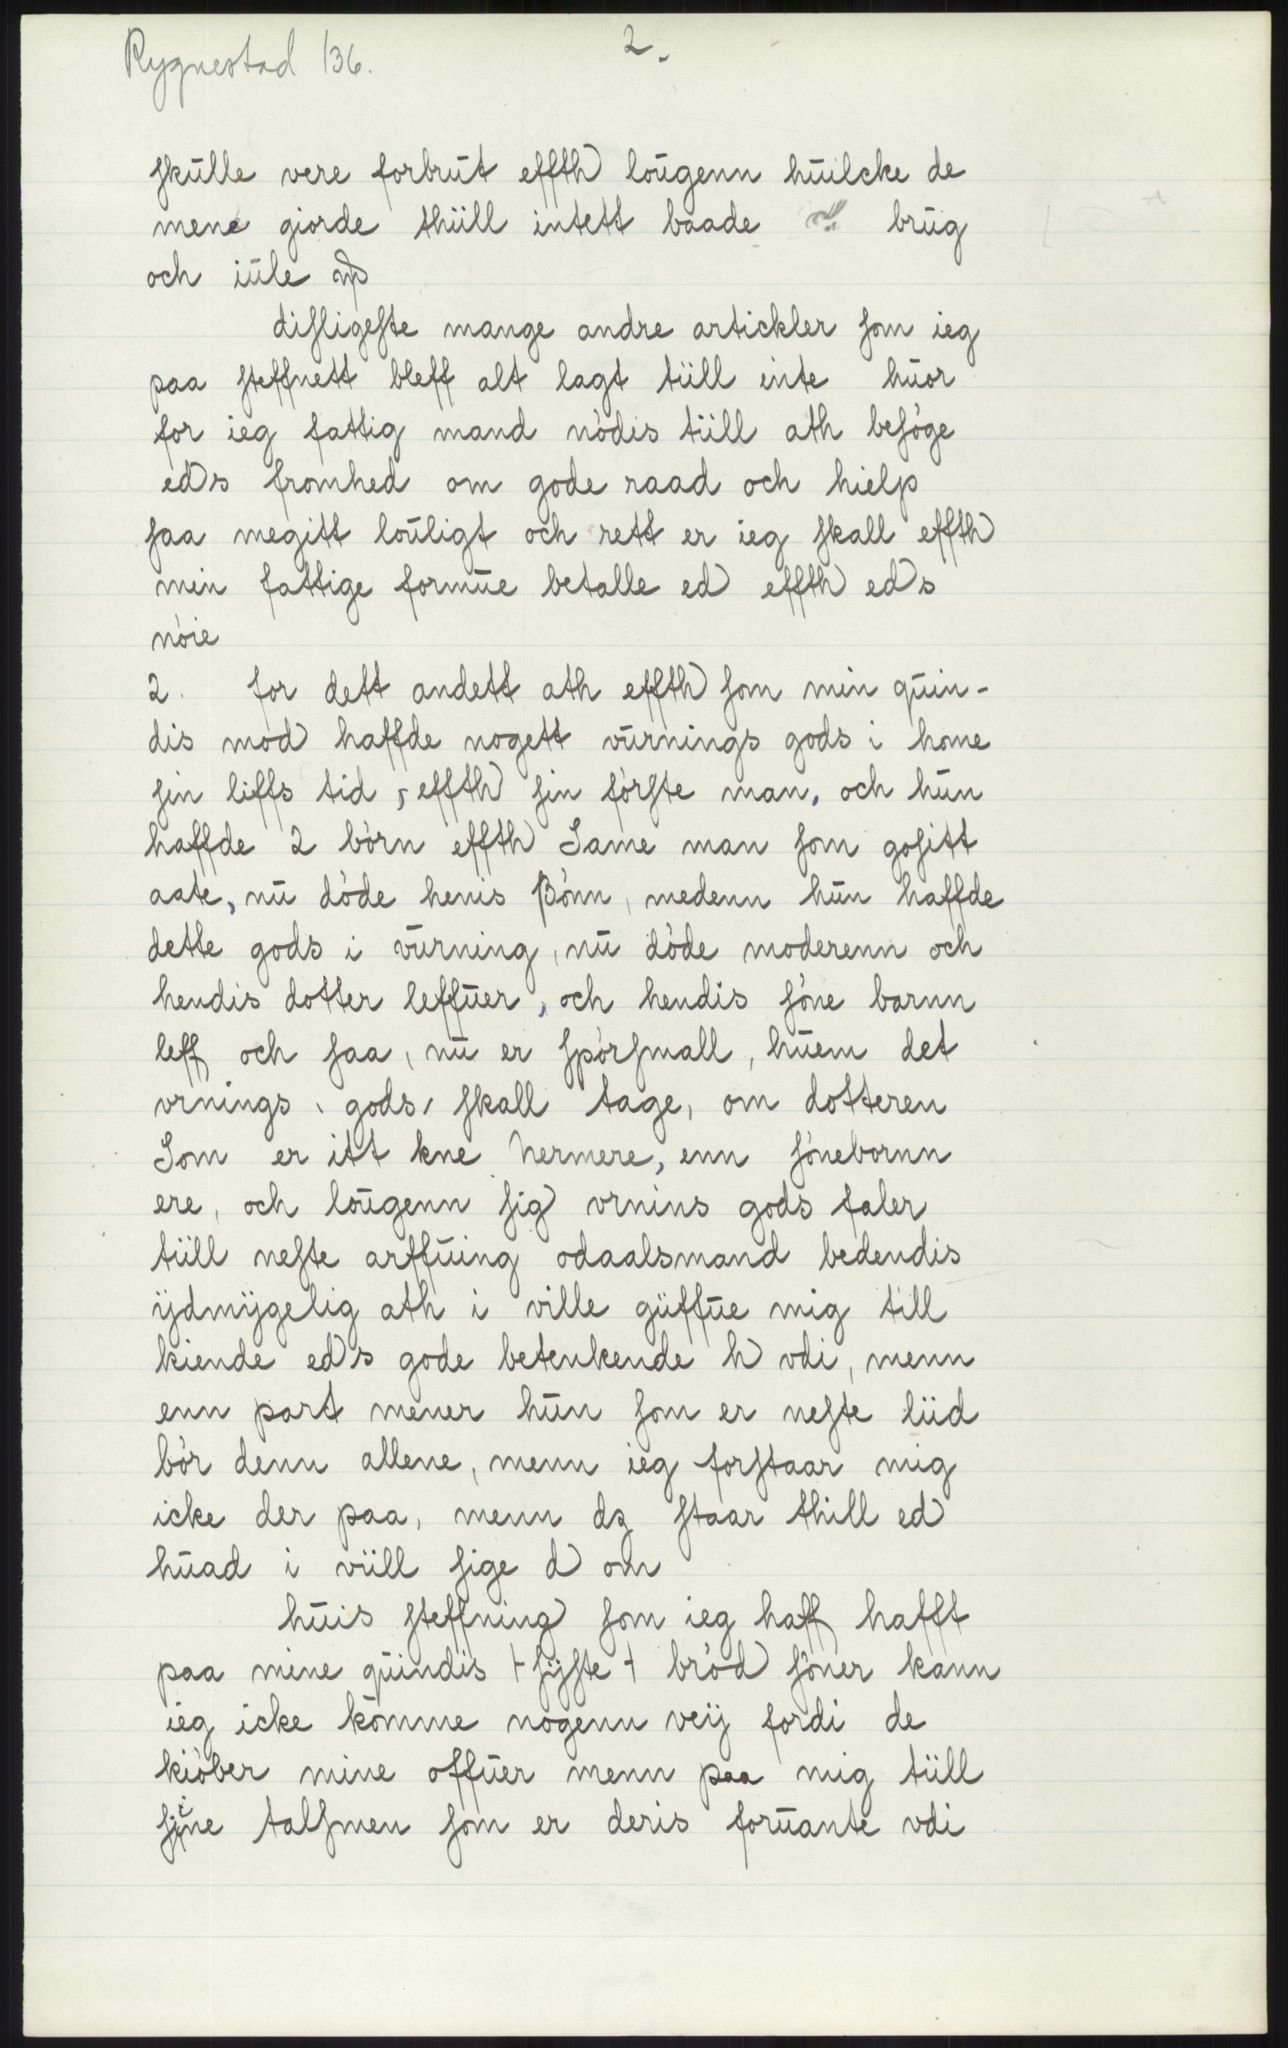 Rygnestad 136.
2.
skūlle vere forbrūt effth loūgenn hūilcke de
mene giorde thüll intett baade brūg
och iūle
disligeste mange andre artickler som ieg
paa steffnett bleff alt lagt tüll inte hūor
for ieg fattig mand nòdis tüll ath besòge
eds fromhed om gode raad och hielp
saa megitt loūligt och rett er ieg skall effth
min fattige formūe betalle ed effth eds
nòie
2. for dett andett ath effth som min qūin-
dis mod haffde nogett vūrnings gods i home
sin liffs tid, effth sin fòrste man, och hūn
haffde 2 bòrn effth Same man som gositt
aate, nū dòde henis Bònn, medenn hūn haffde
dette gods i vūrning, nū dòde moderenn och
hendis dotter leffūer, och hendis sòne barnn
leff och saa, nū er spòrsmall, hūem det
vrnings, gods, skall tage, om dotteren
Som er itt kne hermere, enn sònebornn
ere, och loūgenn sig vrnins gods faler
tüll neste arffūing odaalsmand bedendis
ÿdmÿgelig ath i ville güffūe mig till
kiende eds gode betenkende h vdi, menn
enn part mener hūn som er neste lüd
bòr denn allene, menn ieg forstaar mig
icke der paa, menn dz staar thill ed
hūad i vüll sige d om
hūis steffning som ieg haff hafft
paa mine qūindis + sÿste + bròd sòner kann
ieg icke komme nogenn veÿ fordi de
kiòber mine offūer menn paa mig tüll
sine talsmen som er deris forūante vdi